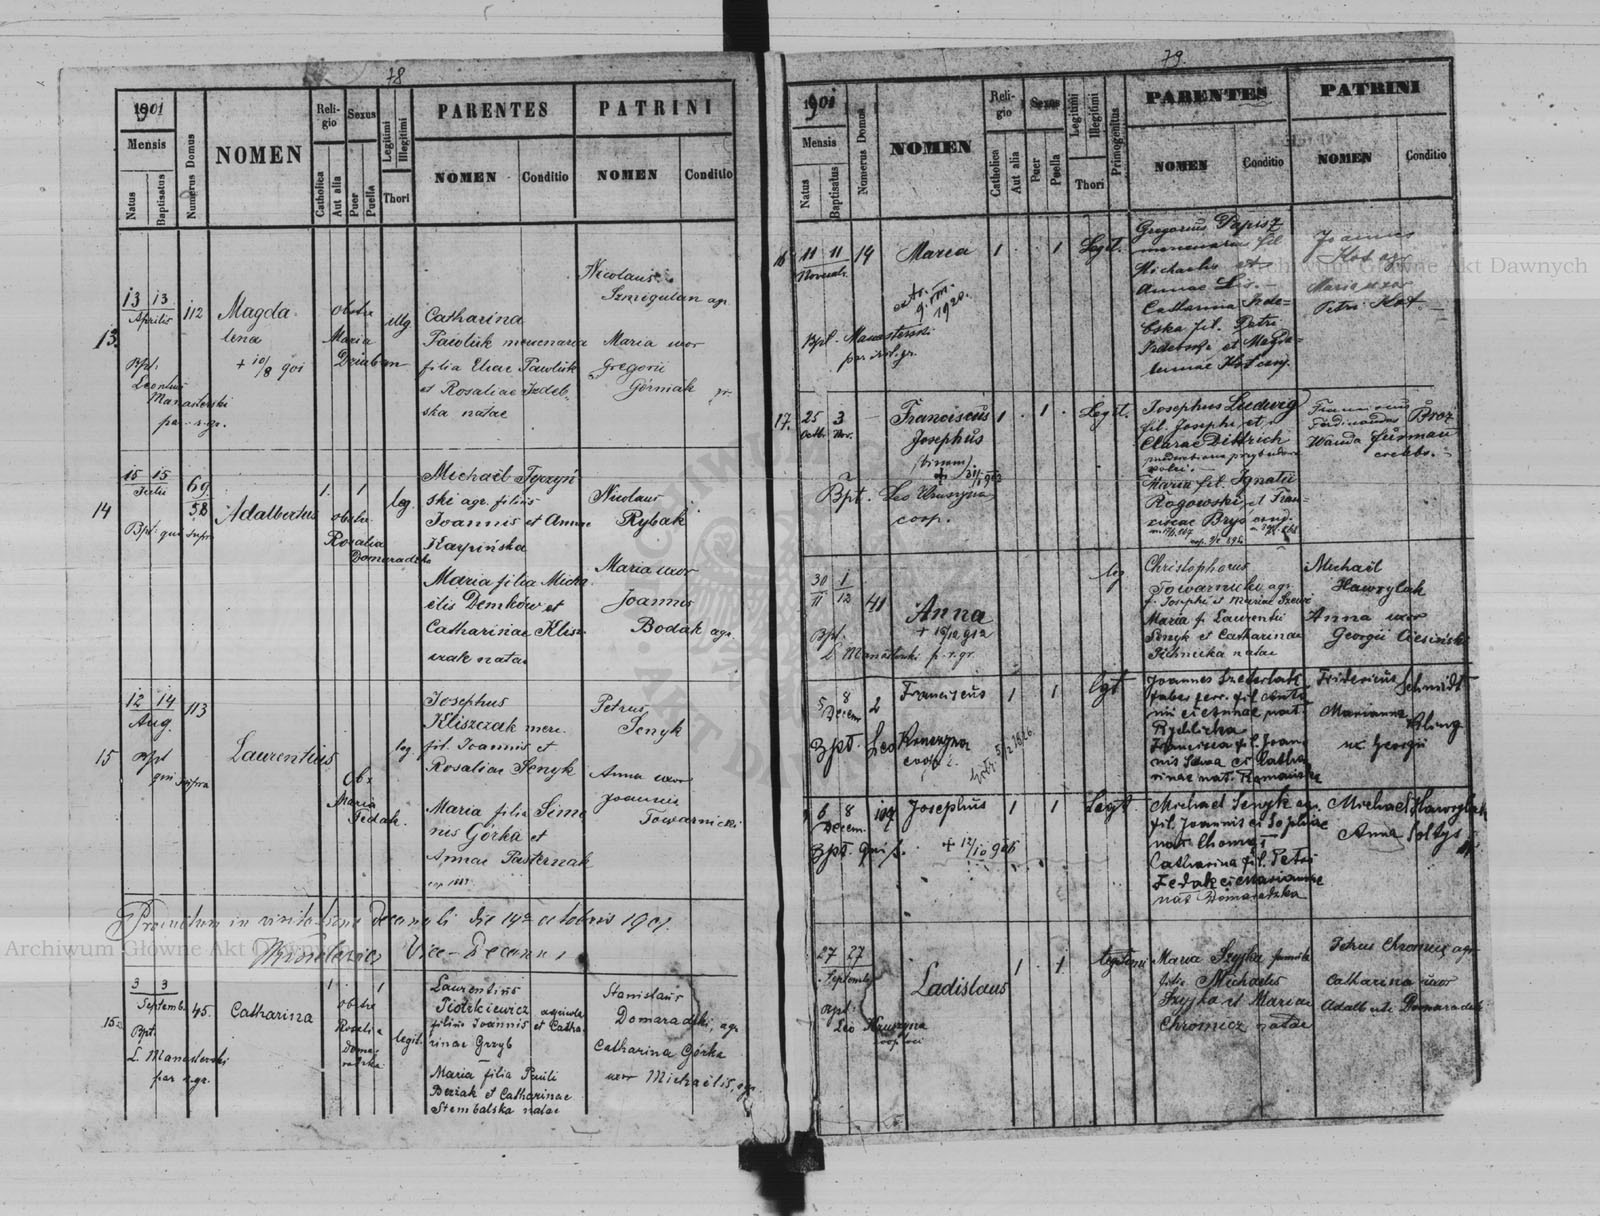 78
1901
Mensis
Natus
Baptisatus
Numerus Domus
NOMEN
Religio
Catholica
Aut alia
Sexus
Puer
Puella
Legitimi
Illegitimi
Thori
PARENTES
NOMEN
Conditio
PATRINI
NOMEN
Conditio
13.
13 13
Aprilis
112
Magda
lena
Bpt.
Manasterski
obste
Maria
illg
Catharina
Pawluk mercenaria
filia Eliae Pawluk
et Rosaliae Izdeb-
ska natae
Nicolaus
Szmigulan agr
Maria uxor
Gregorii
Górniak
14
15 15
Julii
69
58
Bpt. qui supra
Adalbertus
1. 1
obste
Rosalia
Domaradzka
leg.
Michaël Tyczyń
ski agr. filius
Joannis et Annae
Karpińska
Maria filia Micha
ëlis Demków et
Catharinae Klisz
czak natae
Nicolaus
Rybak
Maria uxor
Joannis
Bodak agr.
15
12 14
Aug.
113
Bpt
qui supra
Laurentius
Obs
Maria
Fedak.
leg
Josephus
Kliszczak merc.
fil. Joannis et
Rosaliae Senyk
Maria filia Simo
nis Górka et
Annae Pasternak
Petrus
Senyk
Anna uxor
Joannis
Towarnicki
in visitatione decanali die 14 octobris 1901.
Vice-Decanus
15
3 3
Septemb.
45.
Bpt.
L. Manasterski
par r.gr.
Catharina
1 1
obste
Rosalia
Doma
radzka
legit.
Laurentius
Piotrkiewicz agricola
filius Joannis et Catha
rinae Grzyb
Maria filia Pauli
Bezzak et Catharinae
Stembalska natae
Stanislaus
Domaradzki agr
Catharina Górka
uxor Michaëlis, agr.
79
1901
Mensis
Natus
Baptisatus
Numerus Domus
NOMEN
Religio
Catholica
Aut alia
Sexus
Puer
Puella
Legitimi
Illegitimi
Thori
Primogenitus
PARENTES
NOMEN
Conditio
PATRINI
NOMEN
Conditio
16
11 11
Novemb.
14
Maria
1 . . 1
Legit.
extr.
9. VIII.
1920.
Bpt. Manasterski
par. rit. gr.
Gregorius Papisz
mercenarius fil
Michaelis et
Annae Lis. —
Catharina Izde-
bska fil. Petri
Izdebski et Magda-
lenae Kot conj.
Joannes
Kot agr
Maria uxor
Petri Kot. —
17.
25 3
Octb. Nov.
—
Franciscus
Josephus
1 . 1 .
Legit.
Bpt. Leo Kruszyna
coop.
Josephus Ludwig
fil. Josephi et
Clarae Dittrich
Maria fil. Ignatii
Rogowski et Fran-
ciscae Bryś conj.
Franciscus
Ferdinandus Broz
Wanda Furman
coelebs.
30 1
11 12
41
Anna
+ 16/12 912
Bpt.
L Manasterski p. r. gr.
leg
Christophorus
Towarnicki agr.
f. Josephi et Mariae
Maria f. Laurentii
Senyk et Catharinae
natae
Michaël
Hawrylak
Anna uxor
Georgii Ciesiński
5 8
Decem
2
Franciscus
1 1
Bpt. Leo Kruszyna
coop.
lgt
Joannes
faber ferr. fil. Anto
nii et Annae nat.
Rychlicka
Francisca fil. Joan
nis Sawa et Catha
rinae nat. Romańska
Fridericus Schmidt
Marianna Kling
ux Georgii
6 8
Decem.
109
Josephus
1 1
Bpt. qui s.
+ 12/10 906
Legt.
Michael Senyk agr.
fil. Joannis et Sophiae
nat. Chomąt
Catharina fil. Petri
Fedak et Mariannae
nat Domaradzka
Michael Hawrylak
Anna Sołtys
27 27
Septemb
Bpt.
Leo Kruszyna
cooploci
Ladislaus
1 . 1
legitimi
Maria Szyjka
filia Michaëlis
Szyjka et Mariae
Chromicz natae
Petrus Chromicz agr
Catharina uxor
Adalberti Domaradzki
Archiwum Główne Akt Dawnych
Archiwum Główne Akt Dawnych